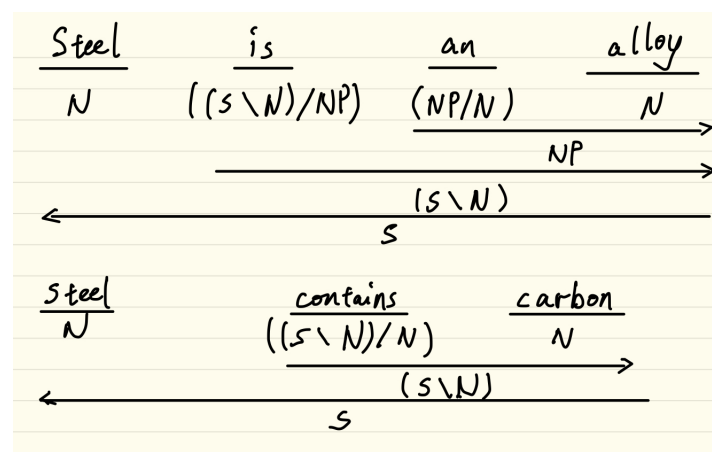 Steel is an alloy
N ((S\N)/NP) (NP/N) N
NP
(S\N)
S
Steel contains carbon
N ((S\N)/N) N
(S\N)
S